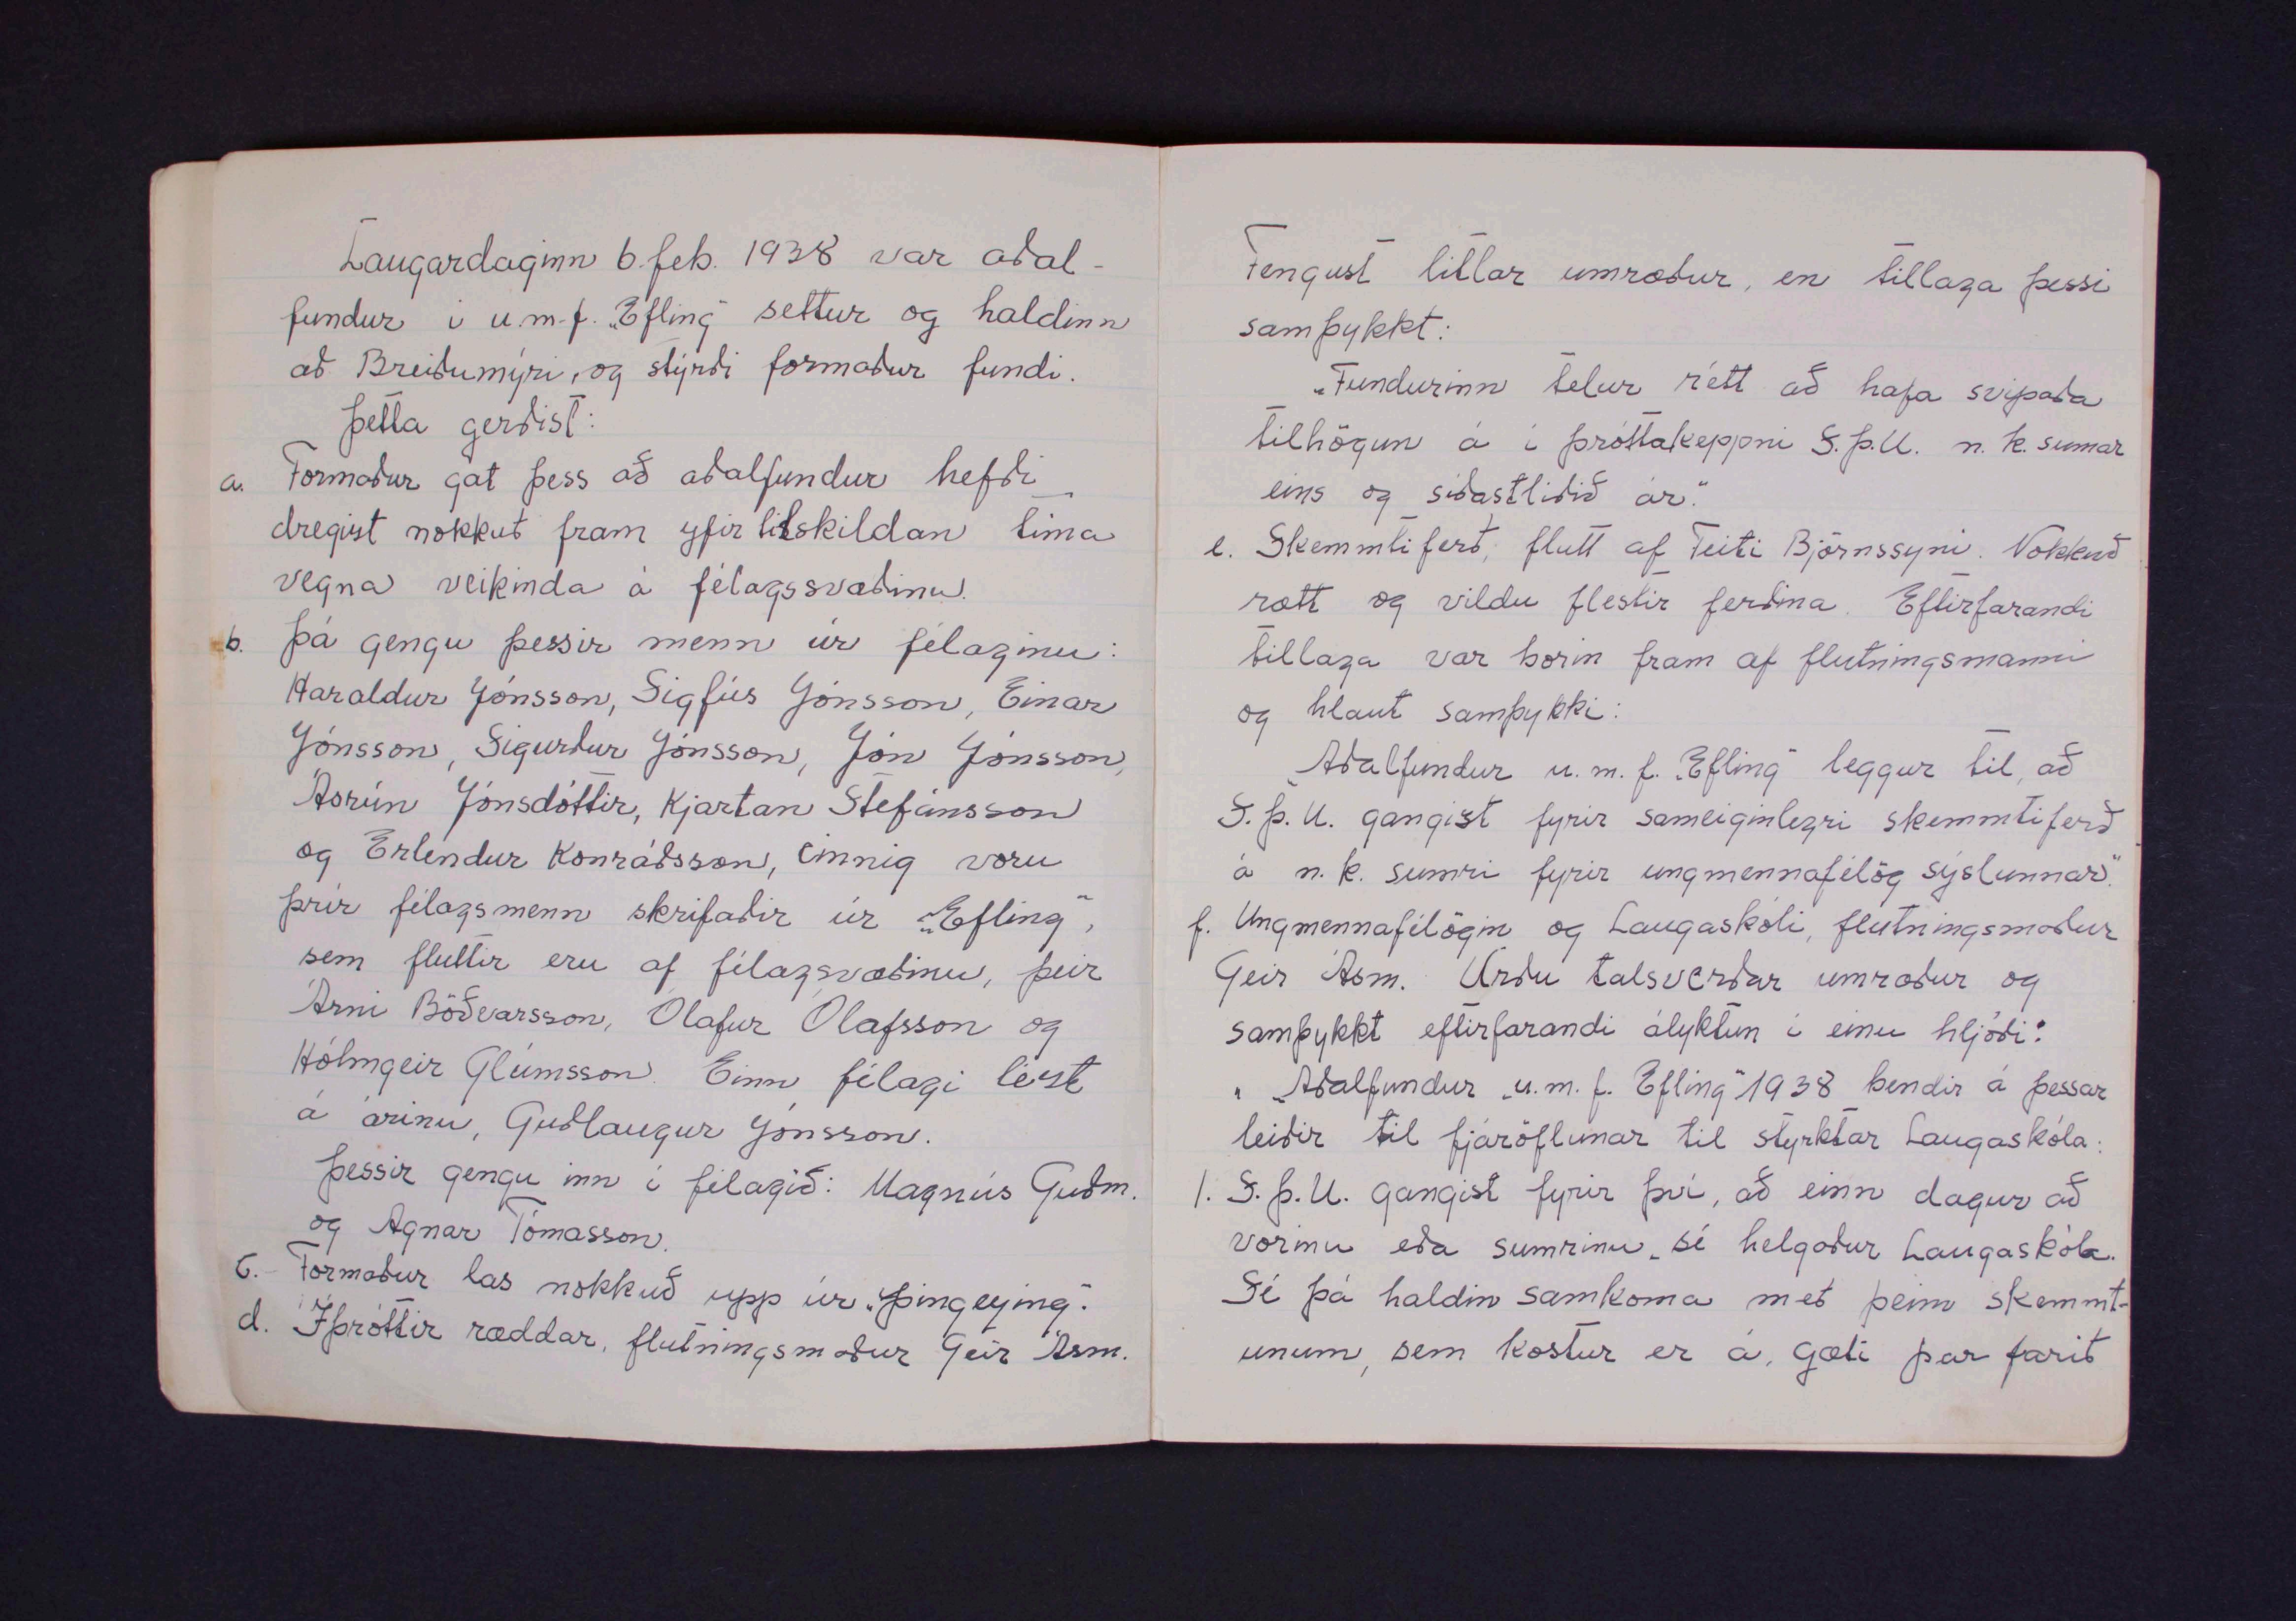 Laugardaginn 6. feb. 1938 var aðal-
fundur í u.m.f. „Efling" settur og haldinn
að Breiðumýri, og stýrði formaður fundi.
Þetta gerðist:
a. Formaður gat þess að aðalfundur hefði
dregist nokkuð fram yfir tilskildan tíma
vegna veikinda á félagssvæðinu.
b. Þá gengu þessir menn úr félaginu:
Haraldur Jónsson, Sigfús Jónsson, Einar
Jónsson, Sigurður Jónsson, Jón Jónsson,
Ásrún Jónsdóttir, Kjartan Stefánsson
og Erlendur Konráðsson, einnig voru
þrír félagsmenn skrifaðir úr „Efling",
sem fluttir eru af félagsvæðinu, þeir
Árni Böðvarsson, Ólafur Ólafsson og
Hólmgeir Glúmsson. Einn félagi lést
á árinu, Guðlaugur Jónsson.
Þessir gengu inn í félagið: Magnús Guðm.
og Agnar Tómasson.
c. Formaður las nokkuð upp úr „Þingeying".
d. Íþróttir ræddar, flutningsmaður Geir Ásm.
Fengust litlar umræður, en tillaga þessi
samþykkt:
„Fundurinn telur rétt að hafa svipaða
tilhögun á í þróttakeppni S.Þ.U. n.k. sumar
eins og síðastliðið ár."
e. Skemmtiferð, flutt af Teiti Björnssyni. Nokkuð
rætt og vildu flestir ferðina. Eftirfarandi
tillaga var borin fram af flutningsmanni
og hlaut samþykki:
„Aðalfundur u.m.f. „Efling" leggur til, að
S.Þ.U. gangist fyrir sameiginlegri skemmtiferð
á n.k. sumri fyrir ungmennafélög sýslunnar."
f. Ungmennafélögin og Laugaskóli, flutningsmaður
Geir Ásm. Urðu talsverðar umræður og
samþykkt eftirfarandi ályktun í einu hljóði:
„Aðalfundur „u.m.f. Efling" 1938 bendir á þessar
leiðir til fjáröflunar til styrktar Laugaskóla:
1. S.Þ.U. gangist fyrir því, að einn dagur að
vorinu eða sumrinu sé helgaður Laugaskóla.
Sé þá haldin samkoma með þeim skemmt-
unum, sem kostur er á, gæti þar farið